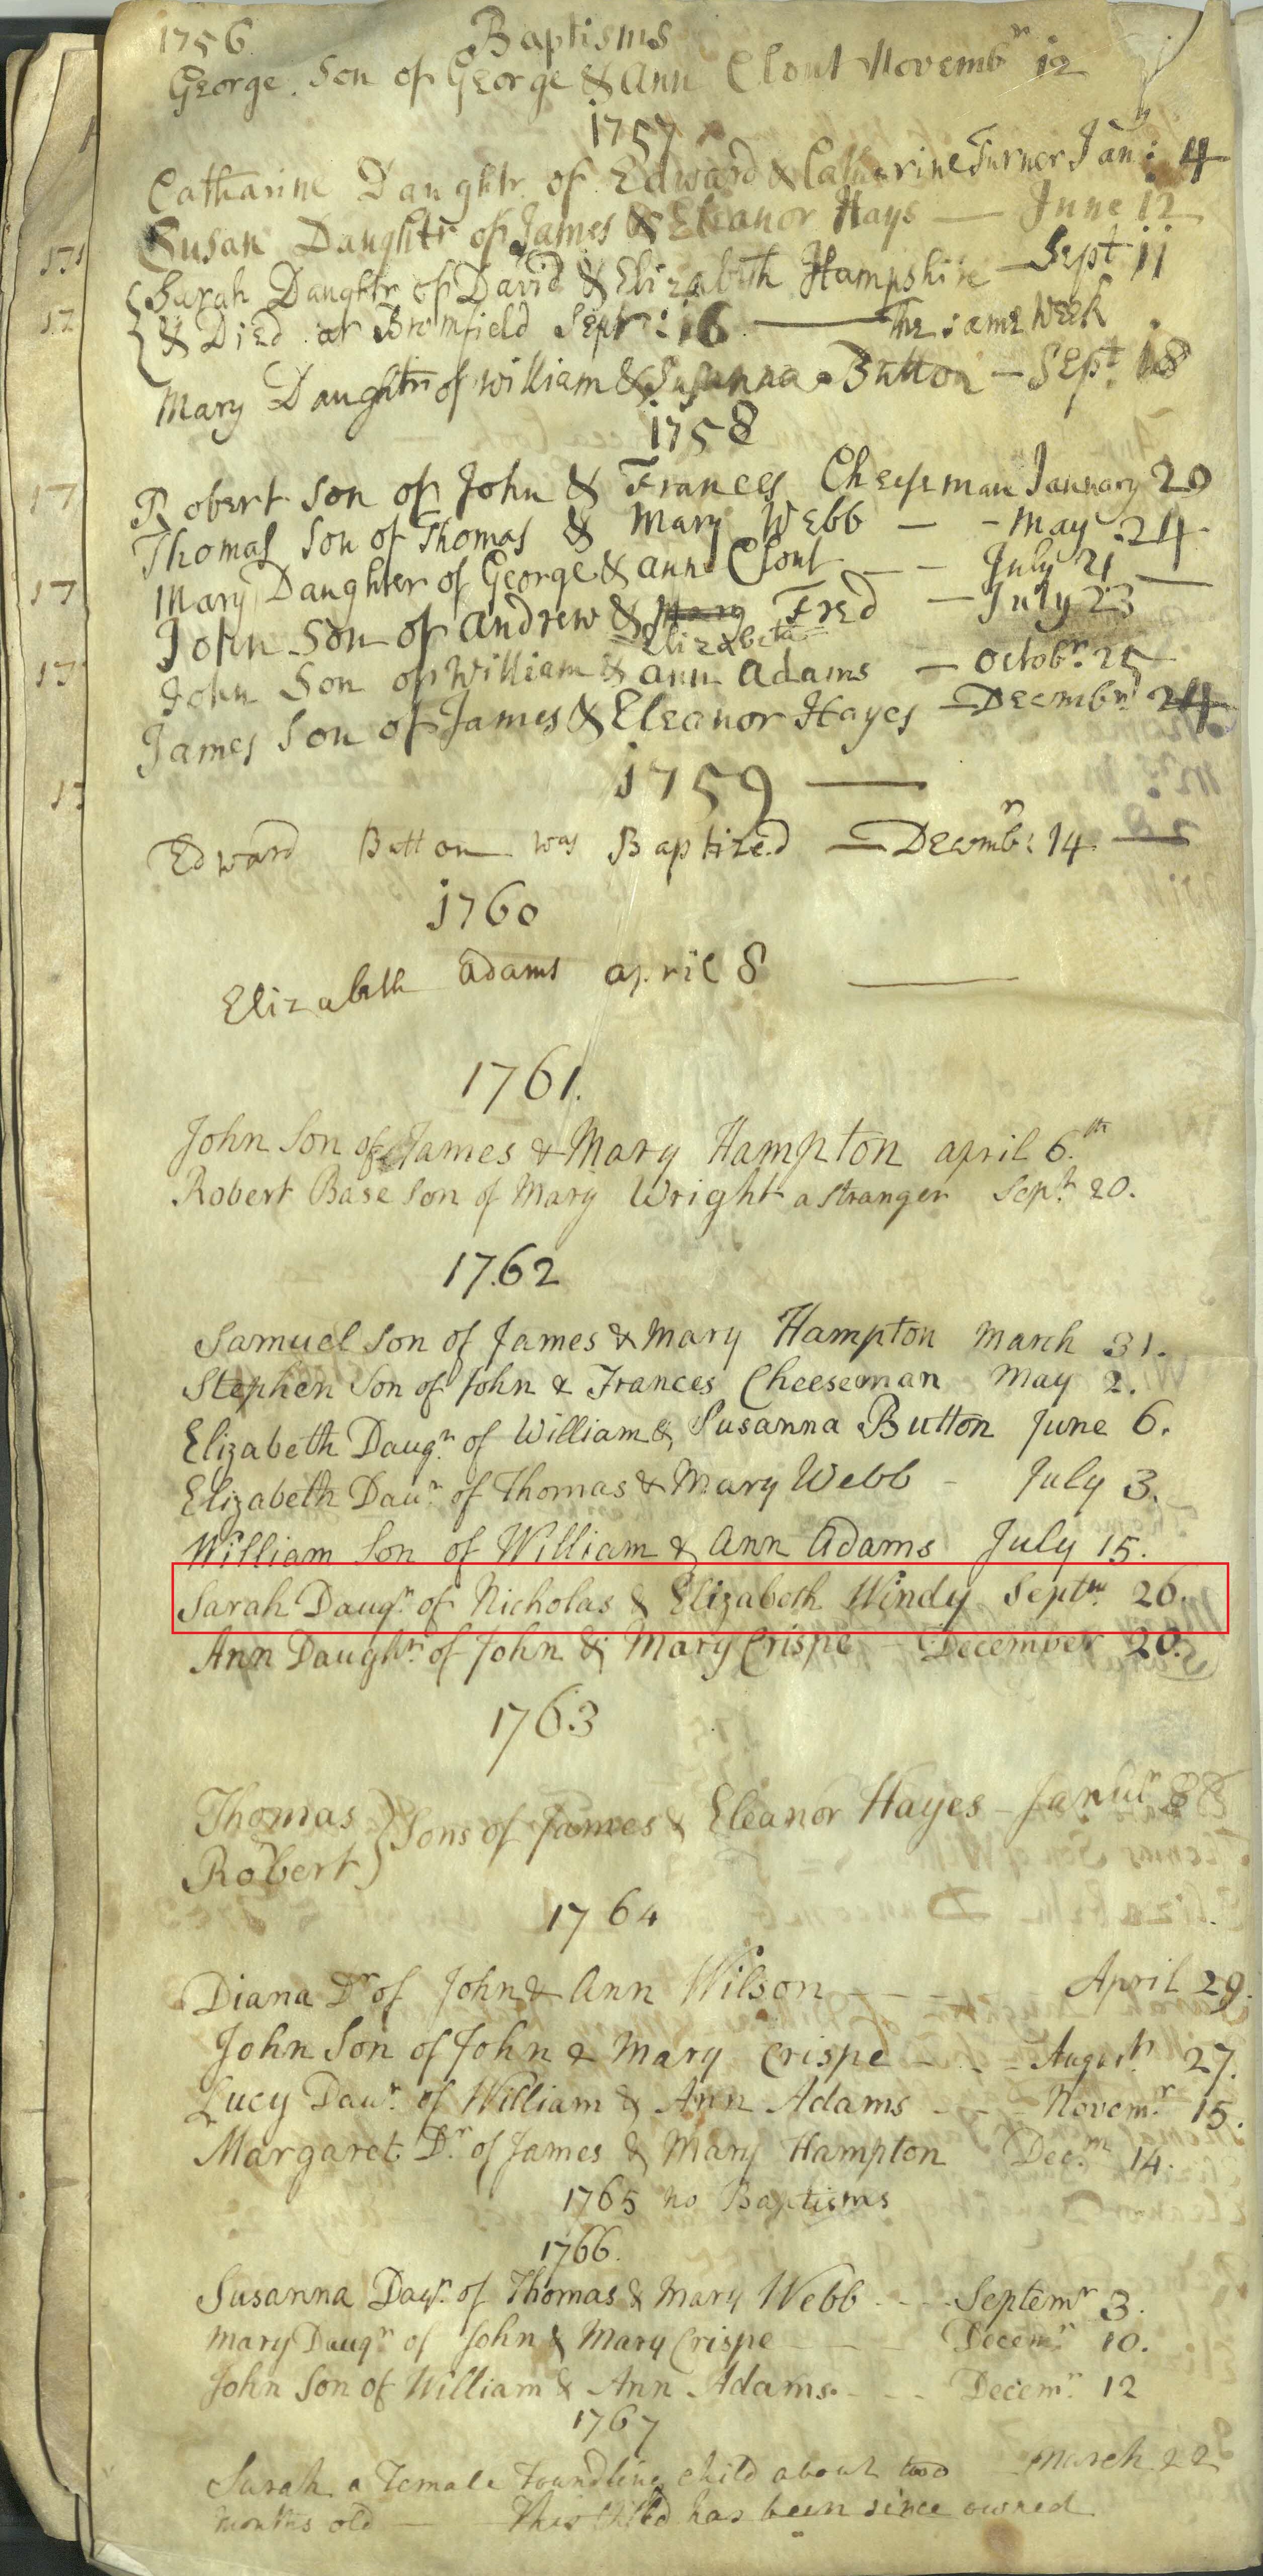 1756 Baptisms
George Son of George & Ann Clout Novembr 12
1757
Catharine Daughtr of Edward & Catharine Turner Jany: 4
Susan Daughtr of James & Eleanor Hays — June 12
Sarah Daughtr of David & Elizabeth Hampshire — Sept 11
& Died at Bromfield Sepr: 16 — The same Week
Mary Daughtr of William & Susanna Button — Sept 18
1758
Robert Son of John & Frances Cheeseman January 20
Thomas Son of Thomas & Mary Webb — - May 24
Mary Daughter of George & ann Clout — — July 21 —
John Son of andrew & Mary Fred — July 23
Elizabeth
John Son of William & ann adams — Octobr. 25
James Son of James & Eleanor Hayes — Decmbr 24
1759 —
Edward Button was Baptized — Decembr: 14 —
1760
Elizabeth adams april 8 —
1761.
John Son of James & Mary Hampton april 6.th
Robert Base Son of Mary Wright a stranger Sept. 20.
1762
Samuel Son of James & Mary Hampton March 31.
Stephen Son of John & Frances Cheeseman May 2.
Elizabeth Daugr. of William & Susanna Button June 6.
Elizabeth Daur. of Thomas & Mary Webb - July 3.
William Son of William & Ann Adams July 15.
Sarah Daugr. of Nicholas & Elizabeth Windy Septr. 26.
Ann Daughr. of John & Mary Crispe - December 20.
1763
Thomas
Robert } Sons of James & Eleanor Hayes -
1764
Diana Dr of John & Ann Wilson - - - April 29.
John Son of John & Mary Crispe - - - August 27.
Lucy Daur. of William & Ann Adams - - - Novemr. 15.
Margaret Dr. of James & Mary Hampton Decr. 14.
1765 no Baptisms
1766.
Susanna Daugr. of Thomas & Mary Webb - - - Septemr 3.
Mary Daugr. of John & Mary Crispe - - - Decemr. 10.
John Son of William & Ann Adams. - - - Decemr. 12
1767
Sarah a Female Foundling child about two March 22
Months old — This Child has been since owned